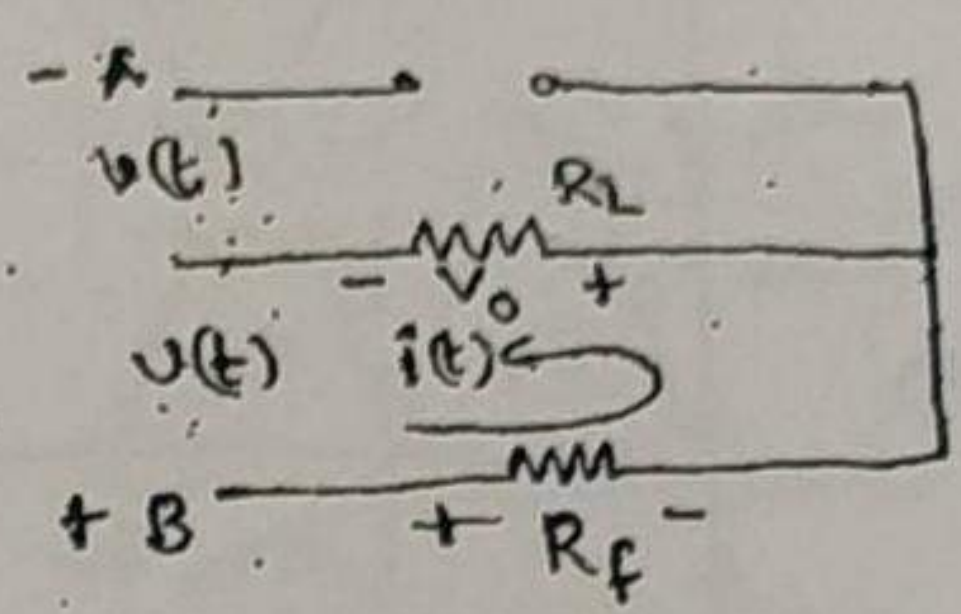 - A
v(t)
RL
- Vo +
v(t) i(t)
+ B + Rf -